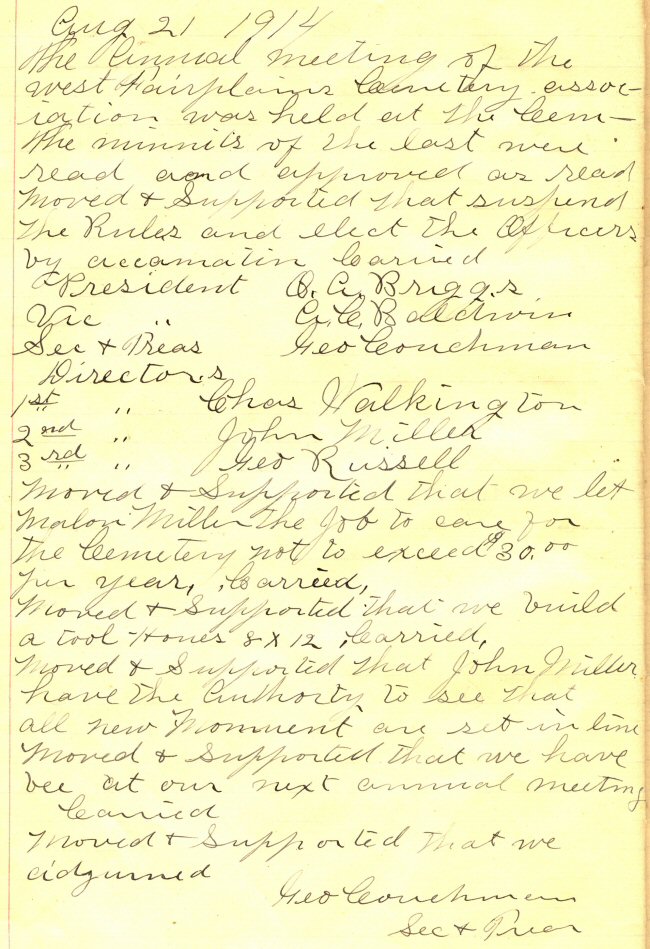 Aug 21 1914
The Annual meeting of the
west Fairplains Cemetery assoc-
iation was held at the Cem-
The minnits of the last were
read and approved as read
Moved & Supported that suspend
the Rules and elect the Officers
by accamatin Carried
President O. A. Briggs
Vic " A. C. Baldwin
Sec & Treas Geo Couchman
Directors
1st " Chas Walkington
2nd " John Miller
3rd " Geo Russell
Moved & Supported that we let
Malon Miller the Job to care for
the Cemetery not to exceed $30.00
per year, Carried,
Moved & Supported that we build
a tool Houes 8 x 12, Carried,
Moved & Supported that John Miller
have the Authorty to see that
all new Monument are set in line
Moved & Supported that we have
bee at our next annual meeting
Carried
Moved & Supported that we
adgurned
Geo Couchman
Sec & Treas